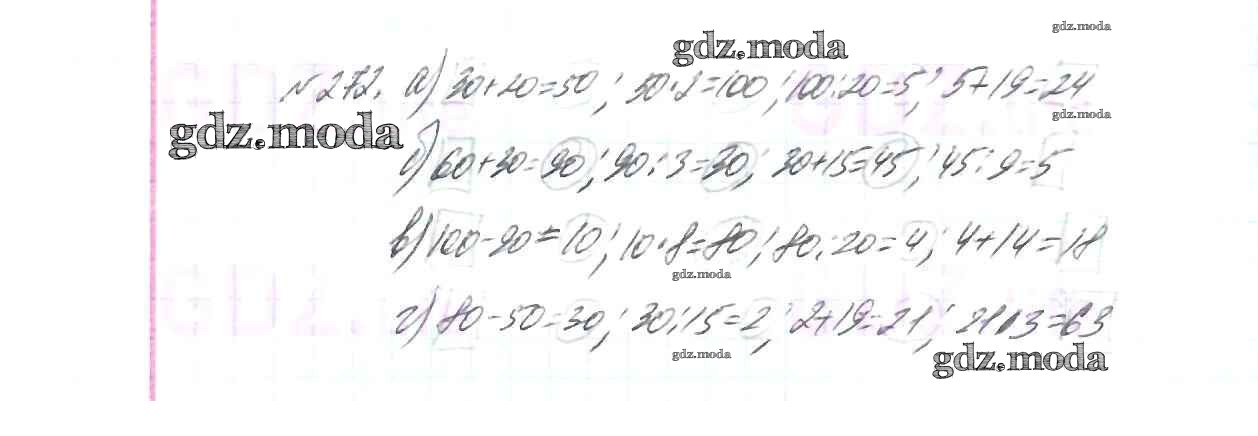 gdz.moda
gdz.moda
№ 272. а) 30+20=50; 50·2=100; 100:20=5; 5+19=24
gdz.moda
gdz.moda
б) 60+30=90; 90:3=30; 30+15=45; 45:9=5
в) 100-90=10; 10·8=80; 80:20=4; 4+14=18
gdz.moda
г) 80-50=30; 30:15=2; 2+19=21; 21·3=63
gdz.moda
gdz.moda